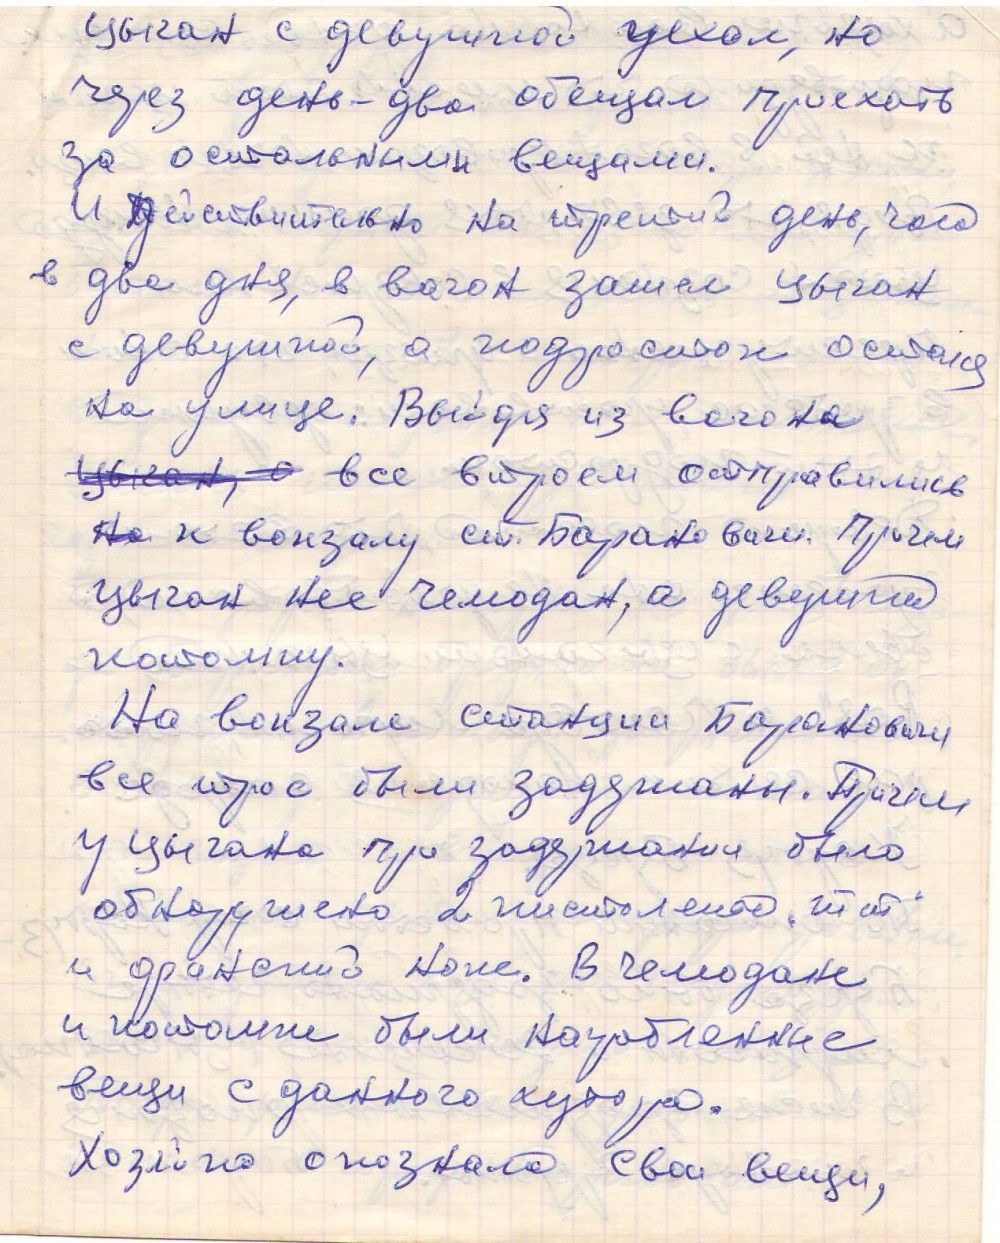 Цыган с девушкой уехал, но
через день-два обещал приехать
за остальными вещами.
И действительно на третий день, часо
в два дня, в вагон зашел цыган
с девушкой, а подросток остался
на улице. Выйдя из вагона
цыган, с все втроем отправились
на к вокзалу ст. Барановичи. Причем
цыган нес чемодан, а девушка
котомку.
На вокзале станции Барановичи
все трое были задержаны. Причем
у цыгана при задержании было
обнаружено 2 пистолета "ТТ"
и финский нож. В чемодане
и котомке были награбленные
вещи с данного хутора.
Хозяйка опознала свои вещи,